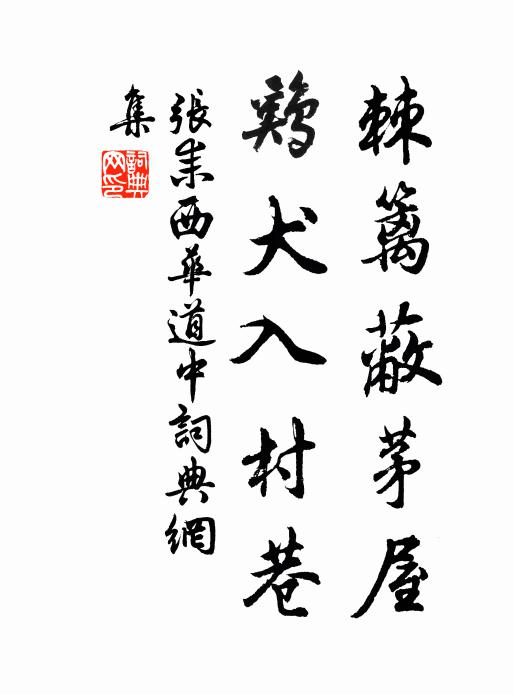 棘篱蔽茅屋
鷄犬入村巷
張耒西華道中詞典網
集
詞典
网印